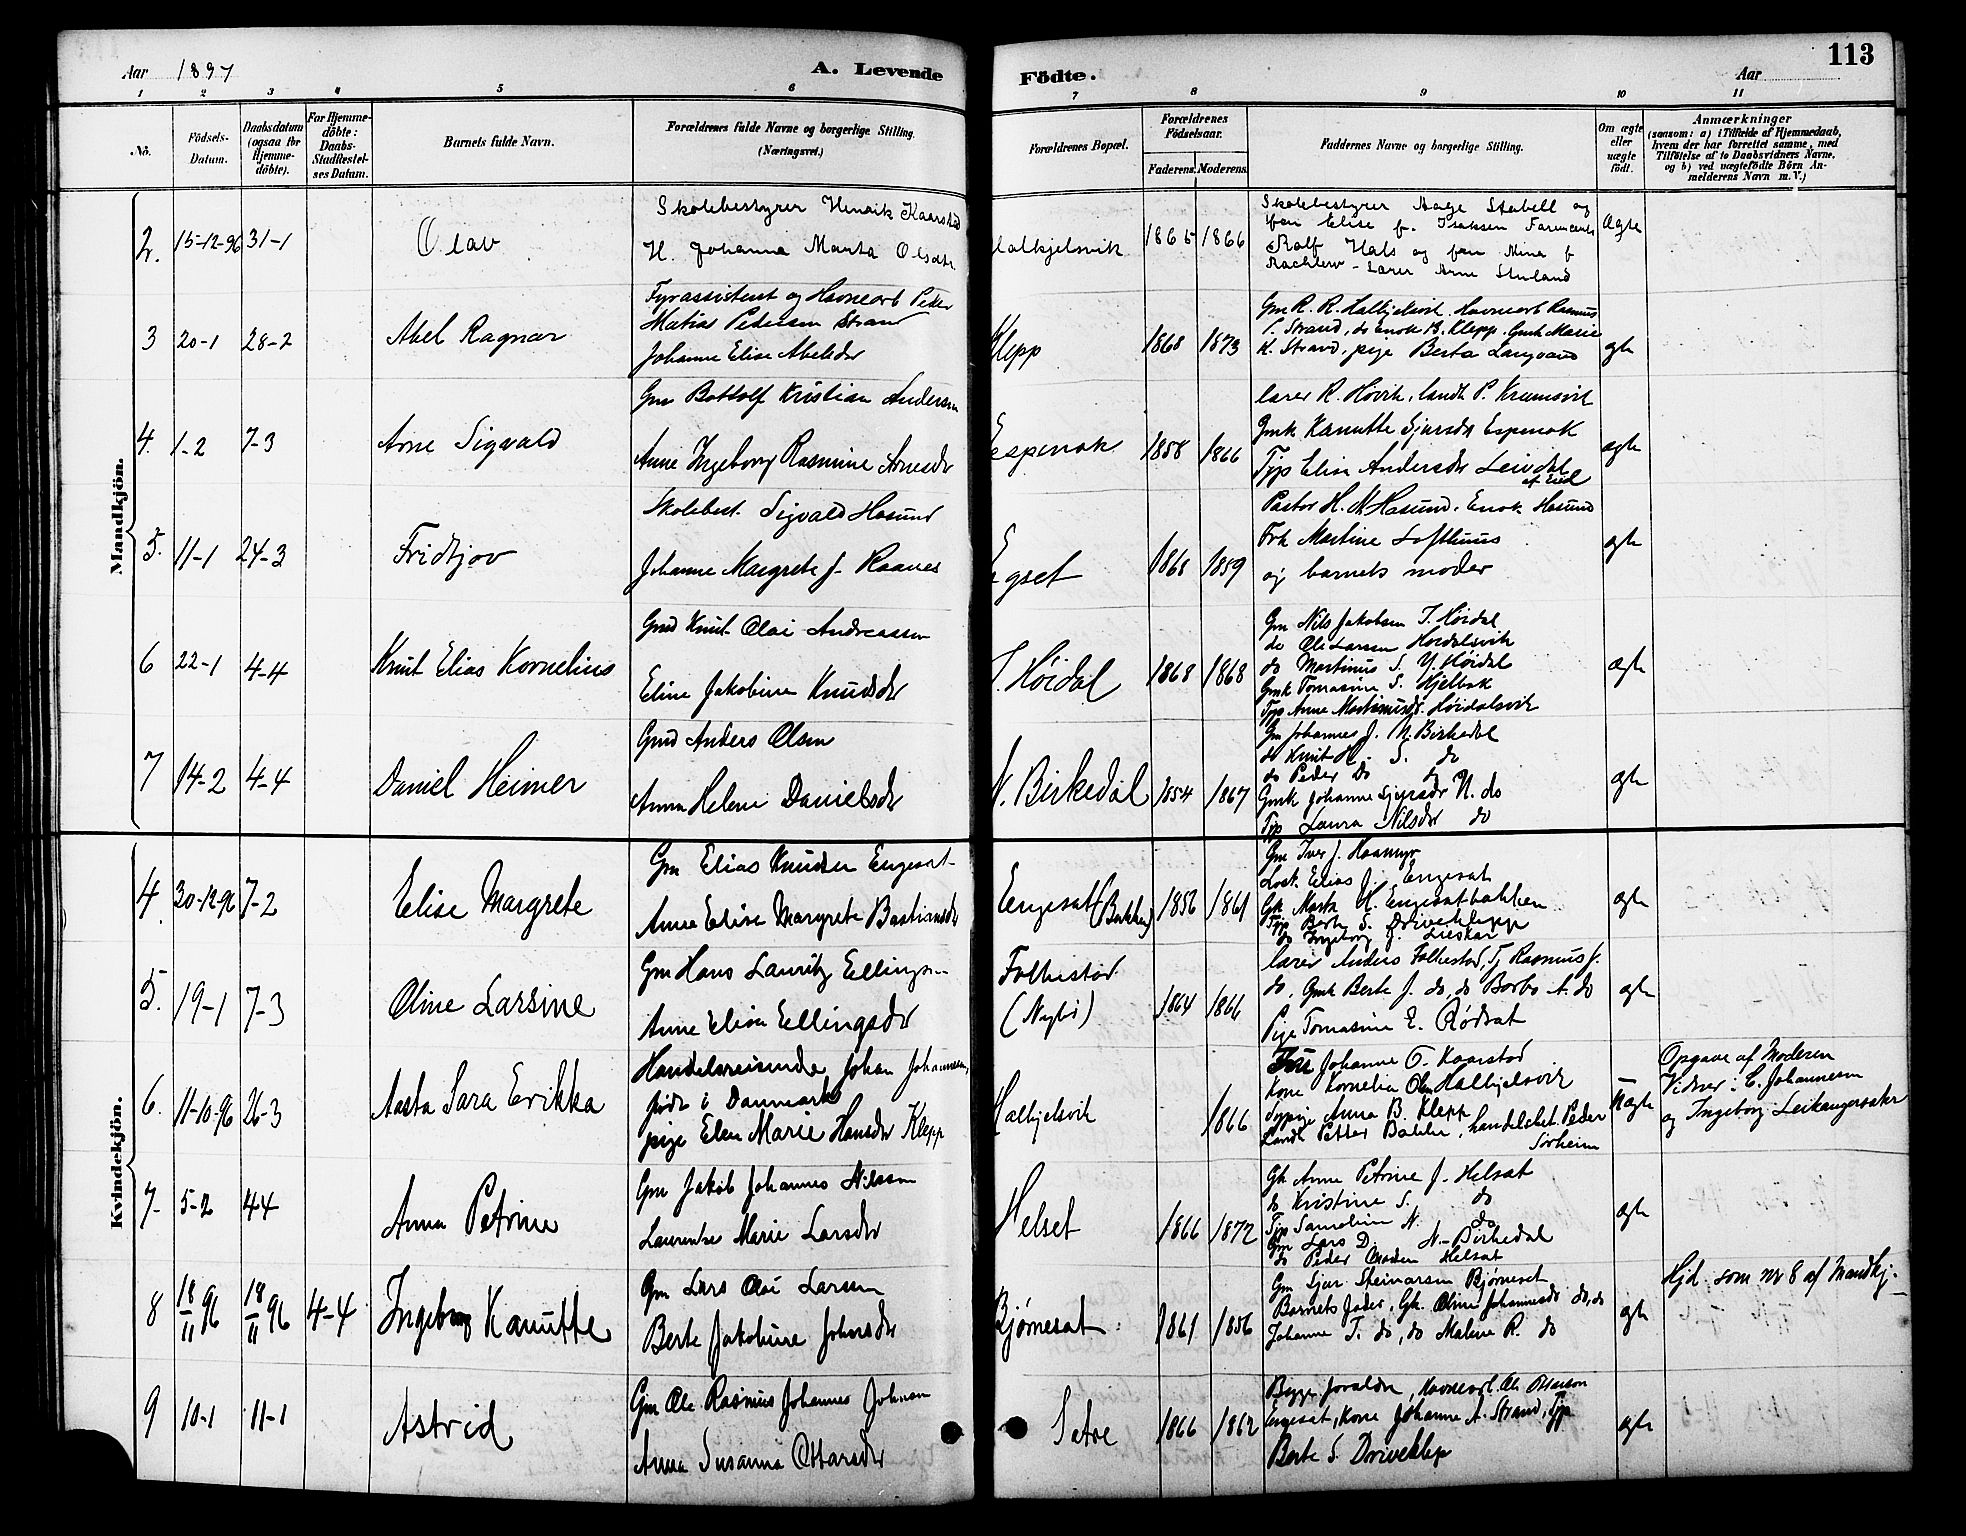 113
Aar 1897
A. Levende
Födte.
Aar
1 2 3 4 5 6 7 8 9 10 11
No.
Födsels-Datum.
Daabsdatum (ogsaa for Hjemme-döbte).
For Hjemme-döbte: Daabs-Stadfæstel-ses Datum.
Barnets fulde Navn.
Forældrenes fulde Navne og borgerlige Stilling.
(Næringsvei.)
Forældrenes Bopæl.
Forældrenes Födselsaar.
Faderens. Moderens.
Faddernes Navne og borgerlige Stilling.
Om ægte eller uægte födt.
Anmærkninger
(saasom: a) i Tilfælde af Hjemmedaab,
hvem der har forrettet samme, med
Tilföielse af to Daabsvidners Navne,
og b) ved uægtefödte Börn An-
melderens Navn m. V.)
Mandkjön.
2. 15-12-96 31-1 Olav
Skolebestyrer Henrik Kaarstad
H. Johanna Marta Olsdtr
Halkjelsvik 1865 1866
Skolebestyrer Aage Stabell og
fru Elise f. Isaksen
Rolf Hals og fru Mina f
Lærer Arne
Ægte
3 20-1 28-2 Abel Ragnar
Fyrassistent og Havnearb Peder
Matias Pedersen Strand
Johanne Elise Abelsdr
Klepp 1868 1873
Gm R. R. Halkjelsvik. Havnearb Rasmus
P. Strand, do Enok B. Klepp. Gmk Marie
K. Strand, pige Berta Langvand
ægte
4. 1-2 7-3 Arne Sigvald
Gm Bottolf Kristian Andersen
Anne Ingeborg Rasmine Arnesdr
Espenak 1858 1866
lærer R. Høvik, landh P. Krumsvik
Gmk Kanutte Sjursdr Espenak
Typ Elise Andersdr Leivdal
af Eid
ægte
5. 11-1 24-3 Fridtjov
Skolebest. Sigvald Hasund
Johanne Margrete f. Raanes
Egset 1868 1859
Pastor H. M Hasund. Enok Hasund
Frk Martine Lofthuus
og barnets moder
ægte
6 22-1 4-4 Knut Elias Kornelius
Gmd Knut Olai Andreassen
Eline Jakobine Knudsdr
I. Høidal 1868 1868
Gm Nils Jakobsen I. Høidal
do Ole Larsen Høidalsvik
do Martinus S. Y. Høidal
Gmk Tomasine S. Hjelbak
Typ Anne Martinusdr. Høidalsvik
ægte
7 14-2 4-4 Daniel Heimer
Gmd Anders Olsen
Anna Helene Danielsdr
N. Birkedal 1854 1867
Gm Johannes J. N. Birkedal
do Knut H. S. do
do Peder do do
Gmk Johanne Sjursdr N. do
Typ Laura Nilsdr do
ægte
Kvindekjön.
4 30-12-96 7-2 Elise Margrete
Gm Elias Knudsen Engeset
Anne Elise Margrete Bastiansdr
Engeset (Bakken) 1856 1861
Gm Iver J. Haamyr
Elias J. Engeset
Gk Marta H. Engesetbakken
Typ Berte S. Driveklepp
do Ingeborg J. Lieskar
ægte
5. 19-1 7-3 Oline Larsine
Gm Hans Lauritz Ellingsen
Anne Elise Ellingsdr
Folkestad
(Nybø) 1864 1866
lærer Anders Folkestad, Tj Rasmus J.
do, Gmk Berte J. do, do Barbo A. do
Pige Tomasine E. Rødsæt
ægte
6. 11-10-96 26-3 Aasta Sara Erikka
Handelsreisende Johan Johannesen
født i Danmark
pige Elen Marie Hansdr Klepp
Halkjelsvik 1866
Fru Johanne O. Kaarstad
Kone Kornelia Olsen Halkjelsvik
Sypige Anna B. Klepp
Landh Petter Bakke, handelsbet. Peder
Sørheim
Uægte
Opgave af Moderen
Vidner: C. Johannesen
og Ingeborg Leikangersæter
7- 5-2 4-4 Anna Petrine
Gm Jakob Johannes Nilssen
Laurentse Marie Larsdr
Helset 1866 1872
Gk Anne Petrine J. Helset
do Kristine S. do
Typ Sameline N. do
Gm Lars D. N. Birkedal
do Peder Helset
ægte
8 18/11 96 18/11 96 4-4 Ingeborg Kanutte
Gm Lars Olai Larsen
Berte Jakobine Johnsdr
Bjørneset 1861 1856
Gm Sjur Steinarsen Bjørneset
Barnets fader, Gk. Oline Johannesdr do, do
Johanne T. do, do Malene R. do
ægte
Hjd. som nr 8 af Mandkj.
9 10-1 11-1 Astrid
Gm Ole Rasmus Johannes Johnsen
Anna Susanna Ottarsdr
Sætre 1866 1862
Begge forældre, Havnearb. Ole Ottarson
Engeset, Kone Johanne A. Strand, Typ
Berte S. Driveklep
ægte